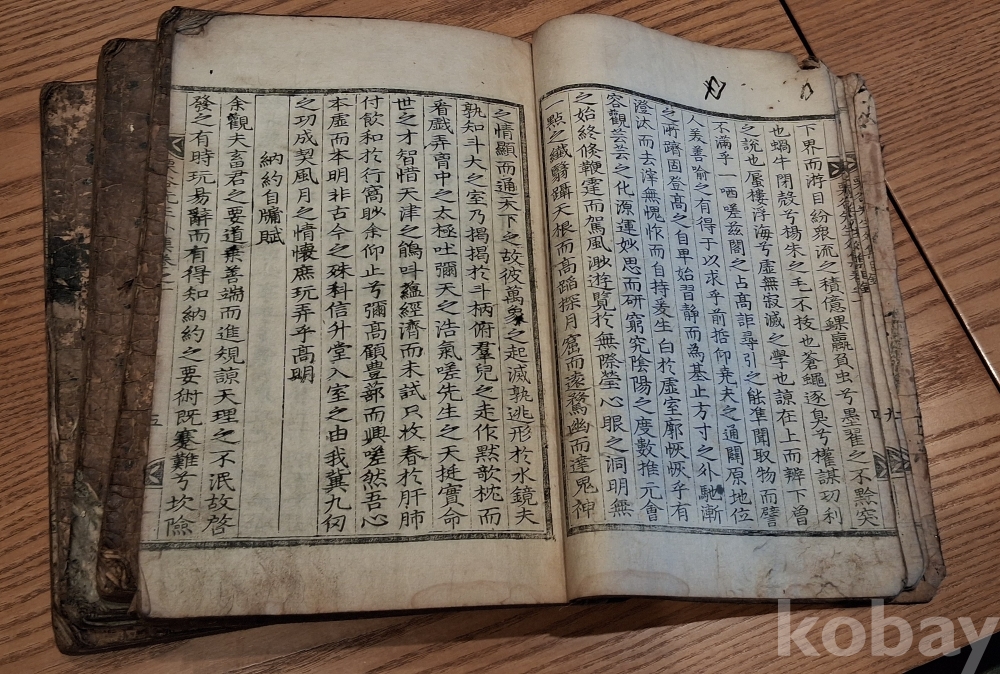 下界而游目紛衆流之積億螺蠃負虫兮墨翟之不黔突
也蝸牛閉殼兮楊朱之毛不拔也蒼蠅逐臭兮權謀功利
之說也蜃樓浮海兮虛無寂滅之學也諒在上而辨下曾
不滿乎一哂嗟茲閣之占高詎尋引之能準聞取物而譬
人美善喩之有得于以求乎前哲仰堯夫之通關原地位
之所躋固登高之自卑始習靜而為基止方寸之外馳漸
澄汰而去滓無愧怍而自持爰生白於虛室廓恢恢乎有
容觀芸芸之化源運妙思而研窮究陰陽之度數推元會
之始終條鞭霆而駕風渺遊覽於無際瑩心眼之洞明無
一點之纖翳躡天根而高蹈探月窟而遠騖幽而達鬼神
之情顯而通天下之故彼萬象之起滅孰逃形於水鏡夫
孰知斗大之室乃揭揭於斗柄俯羣兒之走作默欹枕而
看戲弄胷中之太極吐彌天之浩氣嗟先生之天挺實命
世之才智惜天津之鵑叫蘊經濟而未試只枚春於肝肺
付飮和於行窩眇余仰止兮彌高顧豊蔀而興嗟然吾心
本虛而本明非古今之殊科信升堂入室之由我冀九仞
之功成契風月之情懷庶玩弄乎高明
納約自牖賦
余觀大畜君之要道乘善端而進規諒天理之不泯故啓
發之有時玩易辭而有得知納約之要術旣蹇難兮坎險
kobay